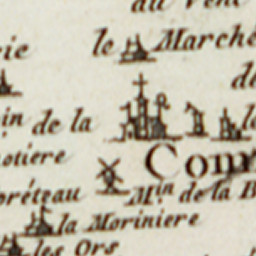 du Vent
rie le Marché
de
in de la la
otiere Com
préteau M.in de la B
la Moriniere
les Ors